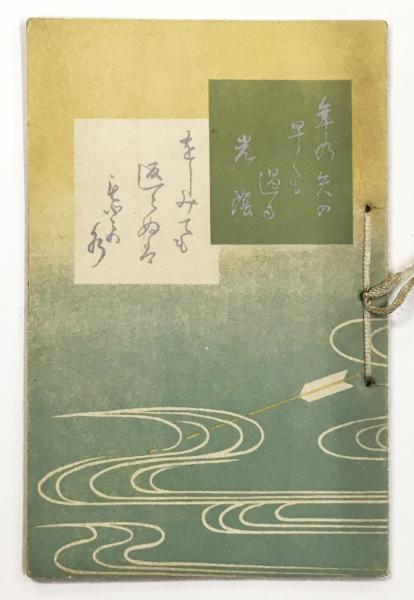 年の矢の
早くも
過る
光陰
をしみても
返らぬは
水